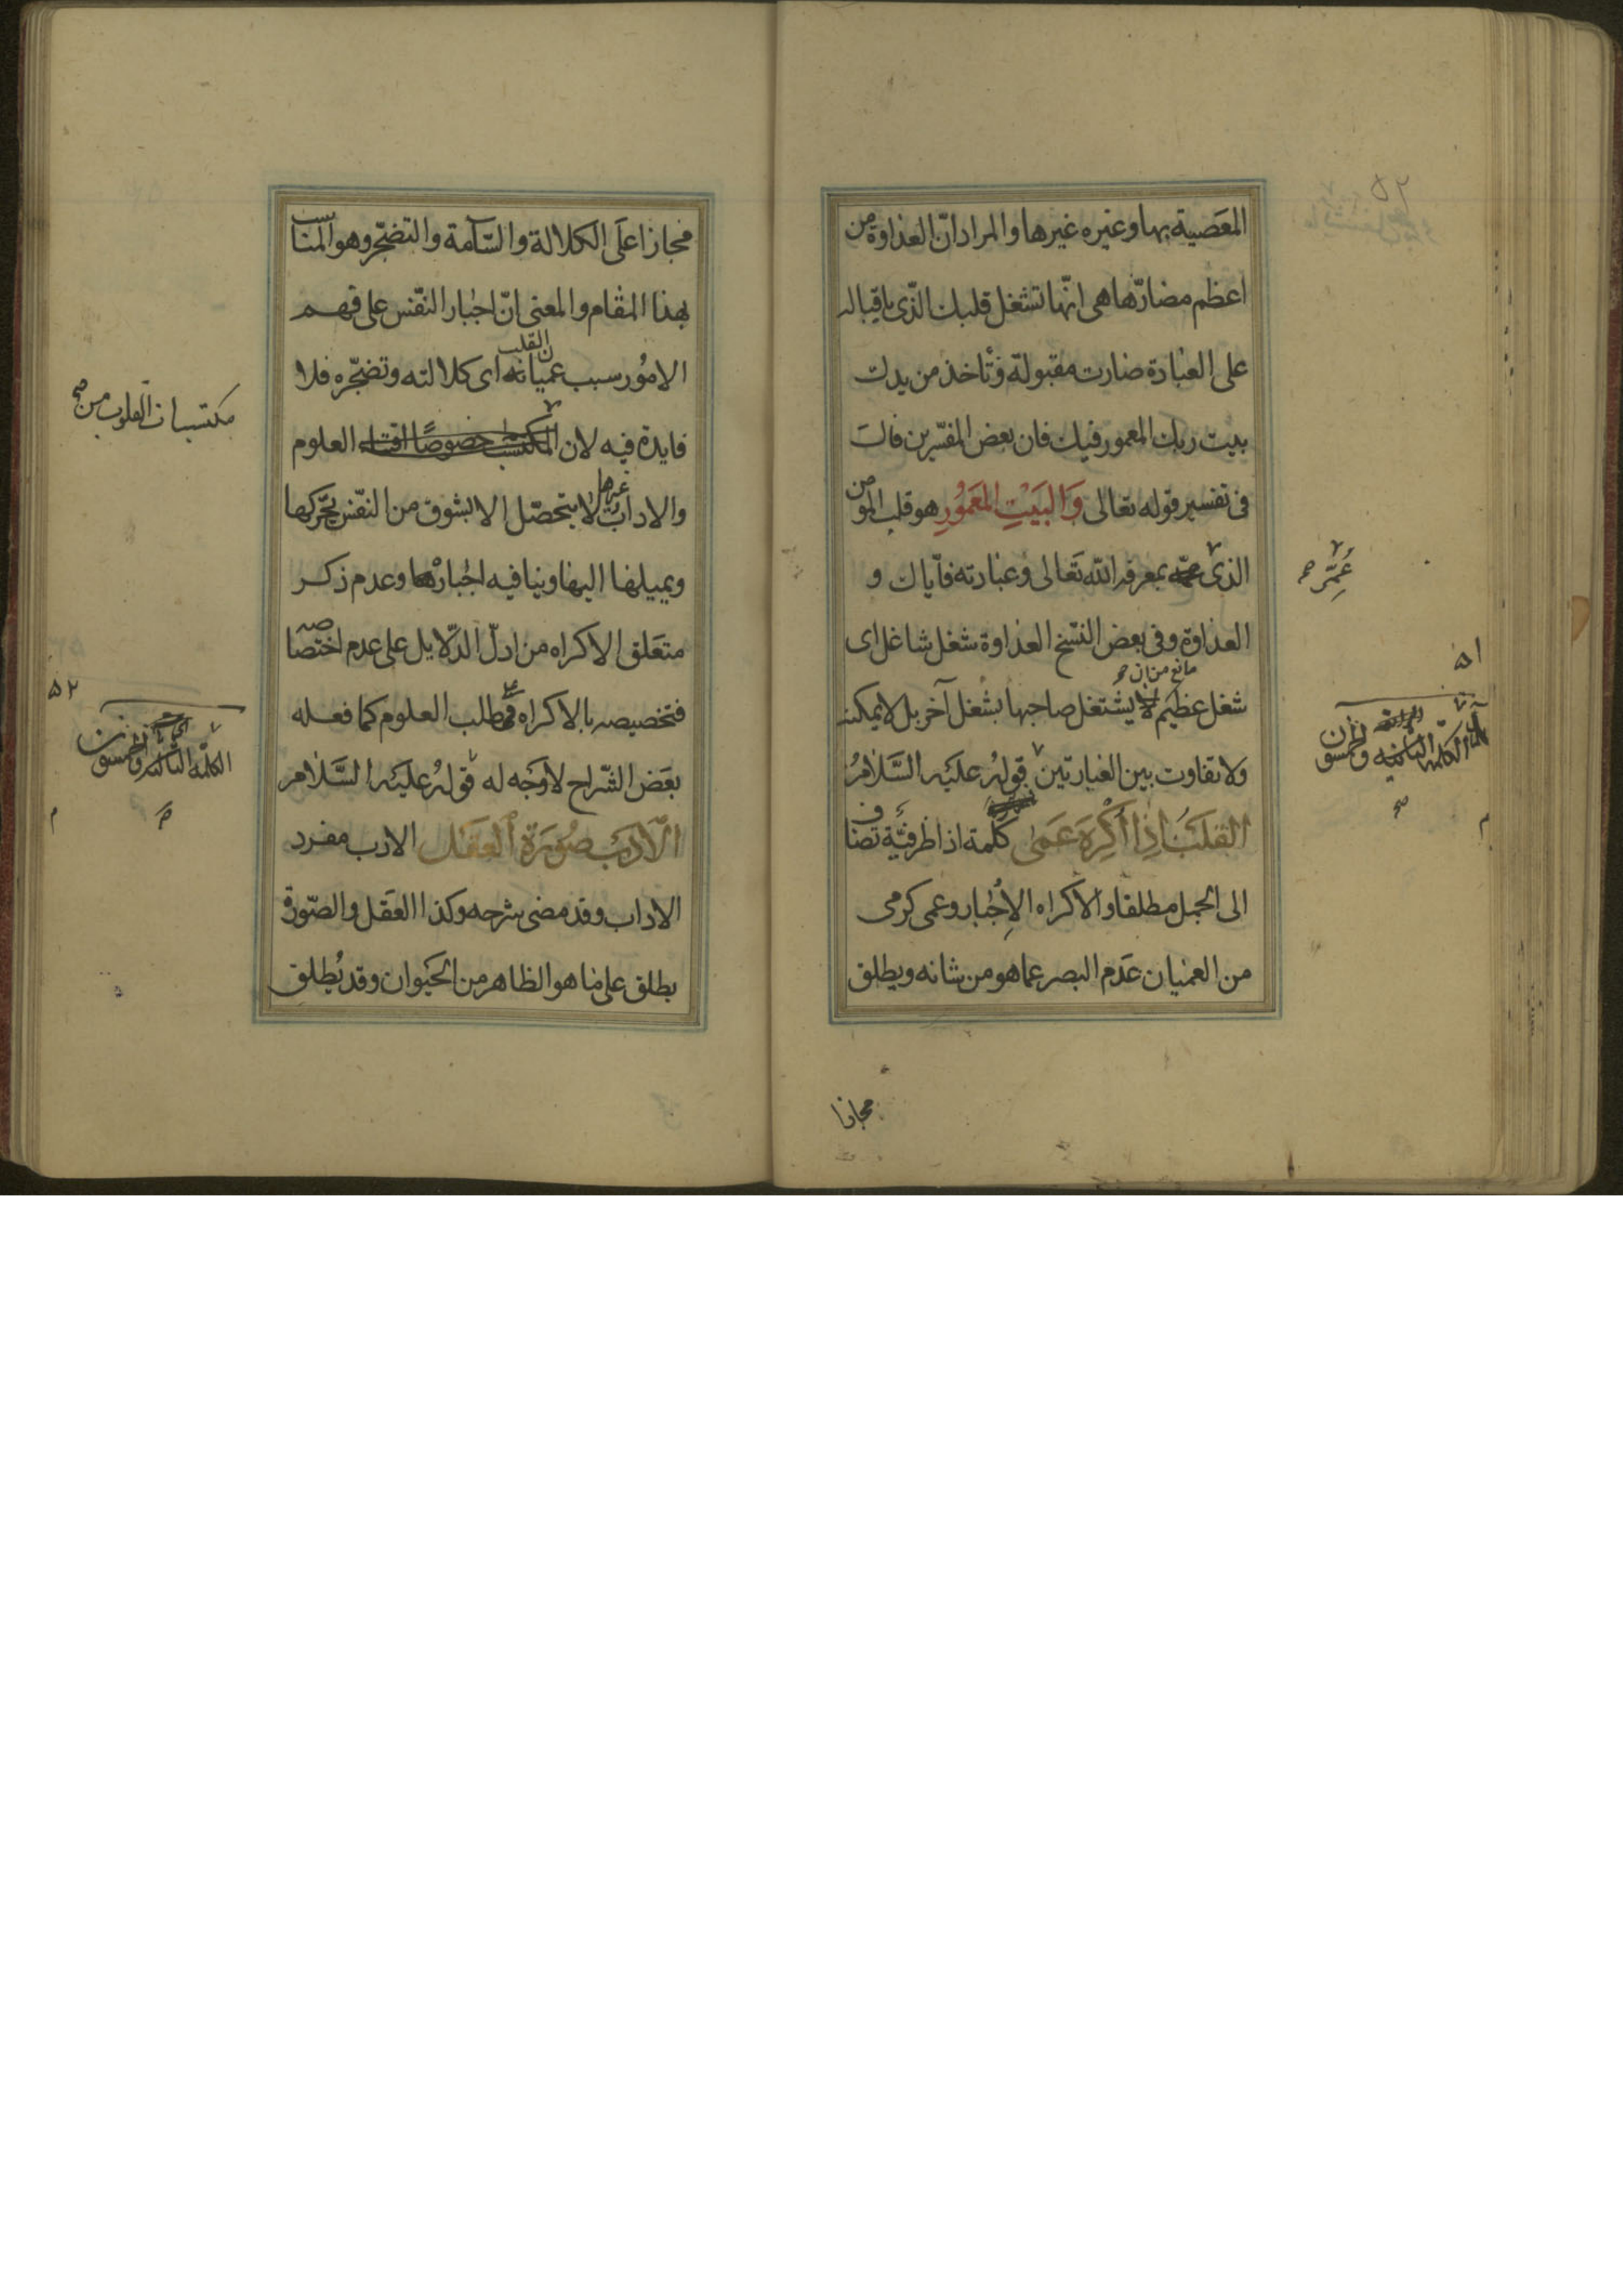 المعصية بها وغيره غيرها والمراد ان العداوة من
اعظم مضارها هى انها تشغل قلبك الذى باقباله
على العبادة صارت مقبولة وتاخذ من يدك
بيت ربك المعمور فيك فان بعض المفسرين قال
فى تفسير قوله تعالى وَالبَيْتِ المَعمُورِ هو قلب المومن
الذى بمعرفة الله تعالى وعبادته فاياك و
العداوة وفى بعض النسخ العداوة شغل شاغل اى
مانع من ان صح
شغل عظيم لا يشتغل صاحبها بشغل آخر بل لا يمكنه
ولا تفاوت بين العبارتين قوله عليه السلام
القلبُ اِذَا اُكْرِهَ عَمىٰ كلمة اذا ظرفيّة تضاف
الى الجمل مطلقا والاكراه الاِجبار وعمى كرمى
من العميان عدم البصر عما هو من شانه ويطلق
عُمِّر صح
٥١
الكلمة الثانية والخمسون
٥٢
مجازا
مجازا على الكلالة والسّآمة والتضجّر وهو المناسب
بهذا المقام والمعنى انّ اجبار النّفس على فهم
الامور سبب عميان القلب اى كلالته وتضجّره فلا
فايدة فيه لان المكتسب خصوصًا اقتناء العلوم
مكتسبات القلوب من صح
والاداب غيرها لا يتحصّل الا بشوق من النّفس يحّركها
ويميلها اليها وينافيه اجبارها وعدم ذكر
متعلق الاكراه من ادلّ الدّلايل على عدم اختصاصه
فتخصيصه بالاكراه على طلب العلوم كما فعله
بعض الشّراح لا وجه له قوله عليه السّلام
الاَدَبُ صُورَةُ العَقل الادب مفرد
الاداب وقد مضى شرحه وكذا العقل والصّورة
يطلق على ما هو الظاهر من الحيوان وقد يُطلق
٥٢
الكلمة الثالثة والخمسون